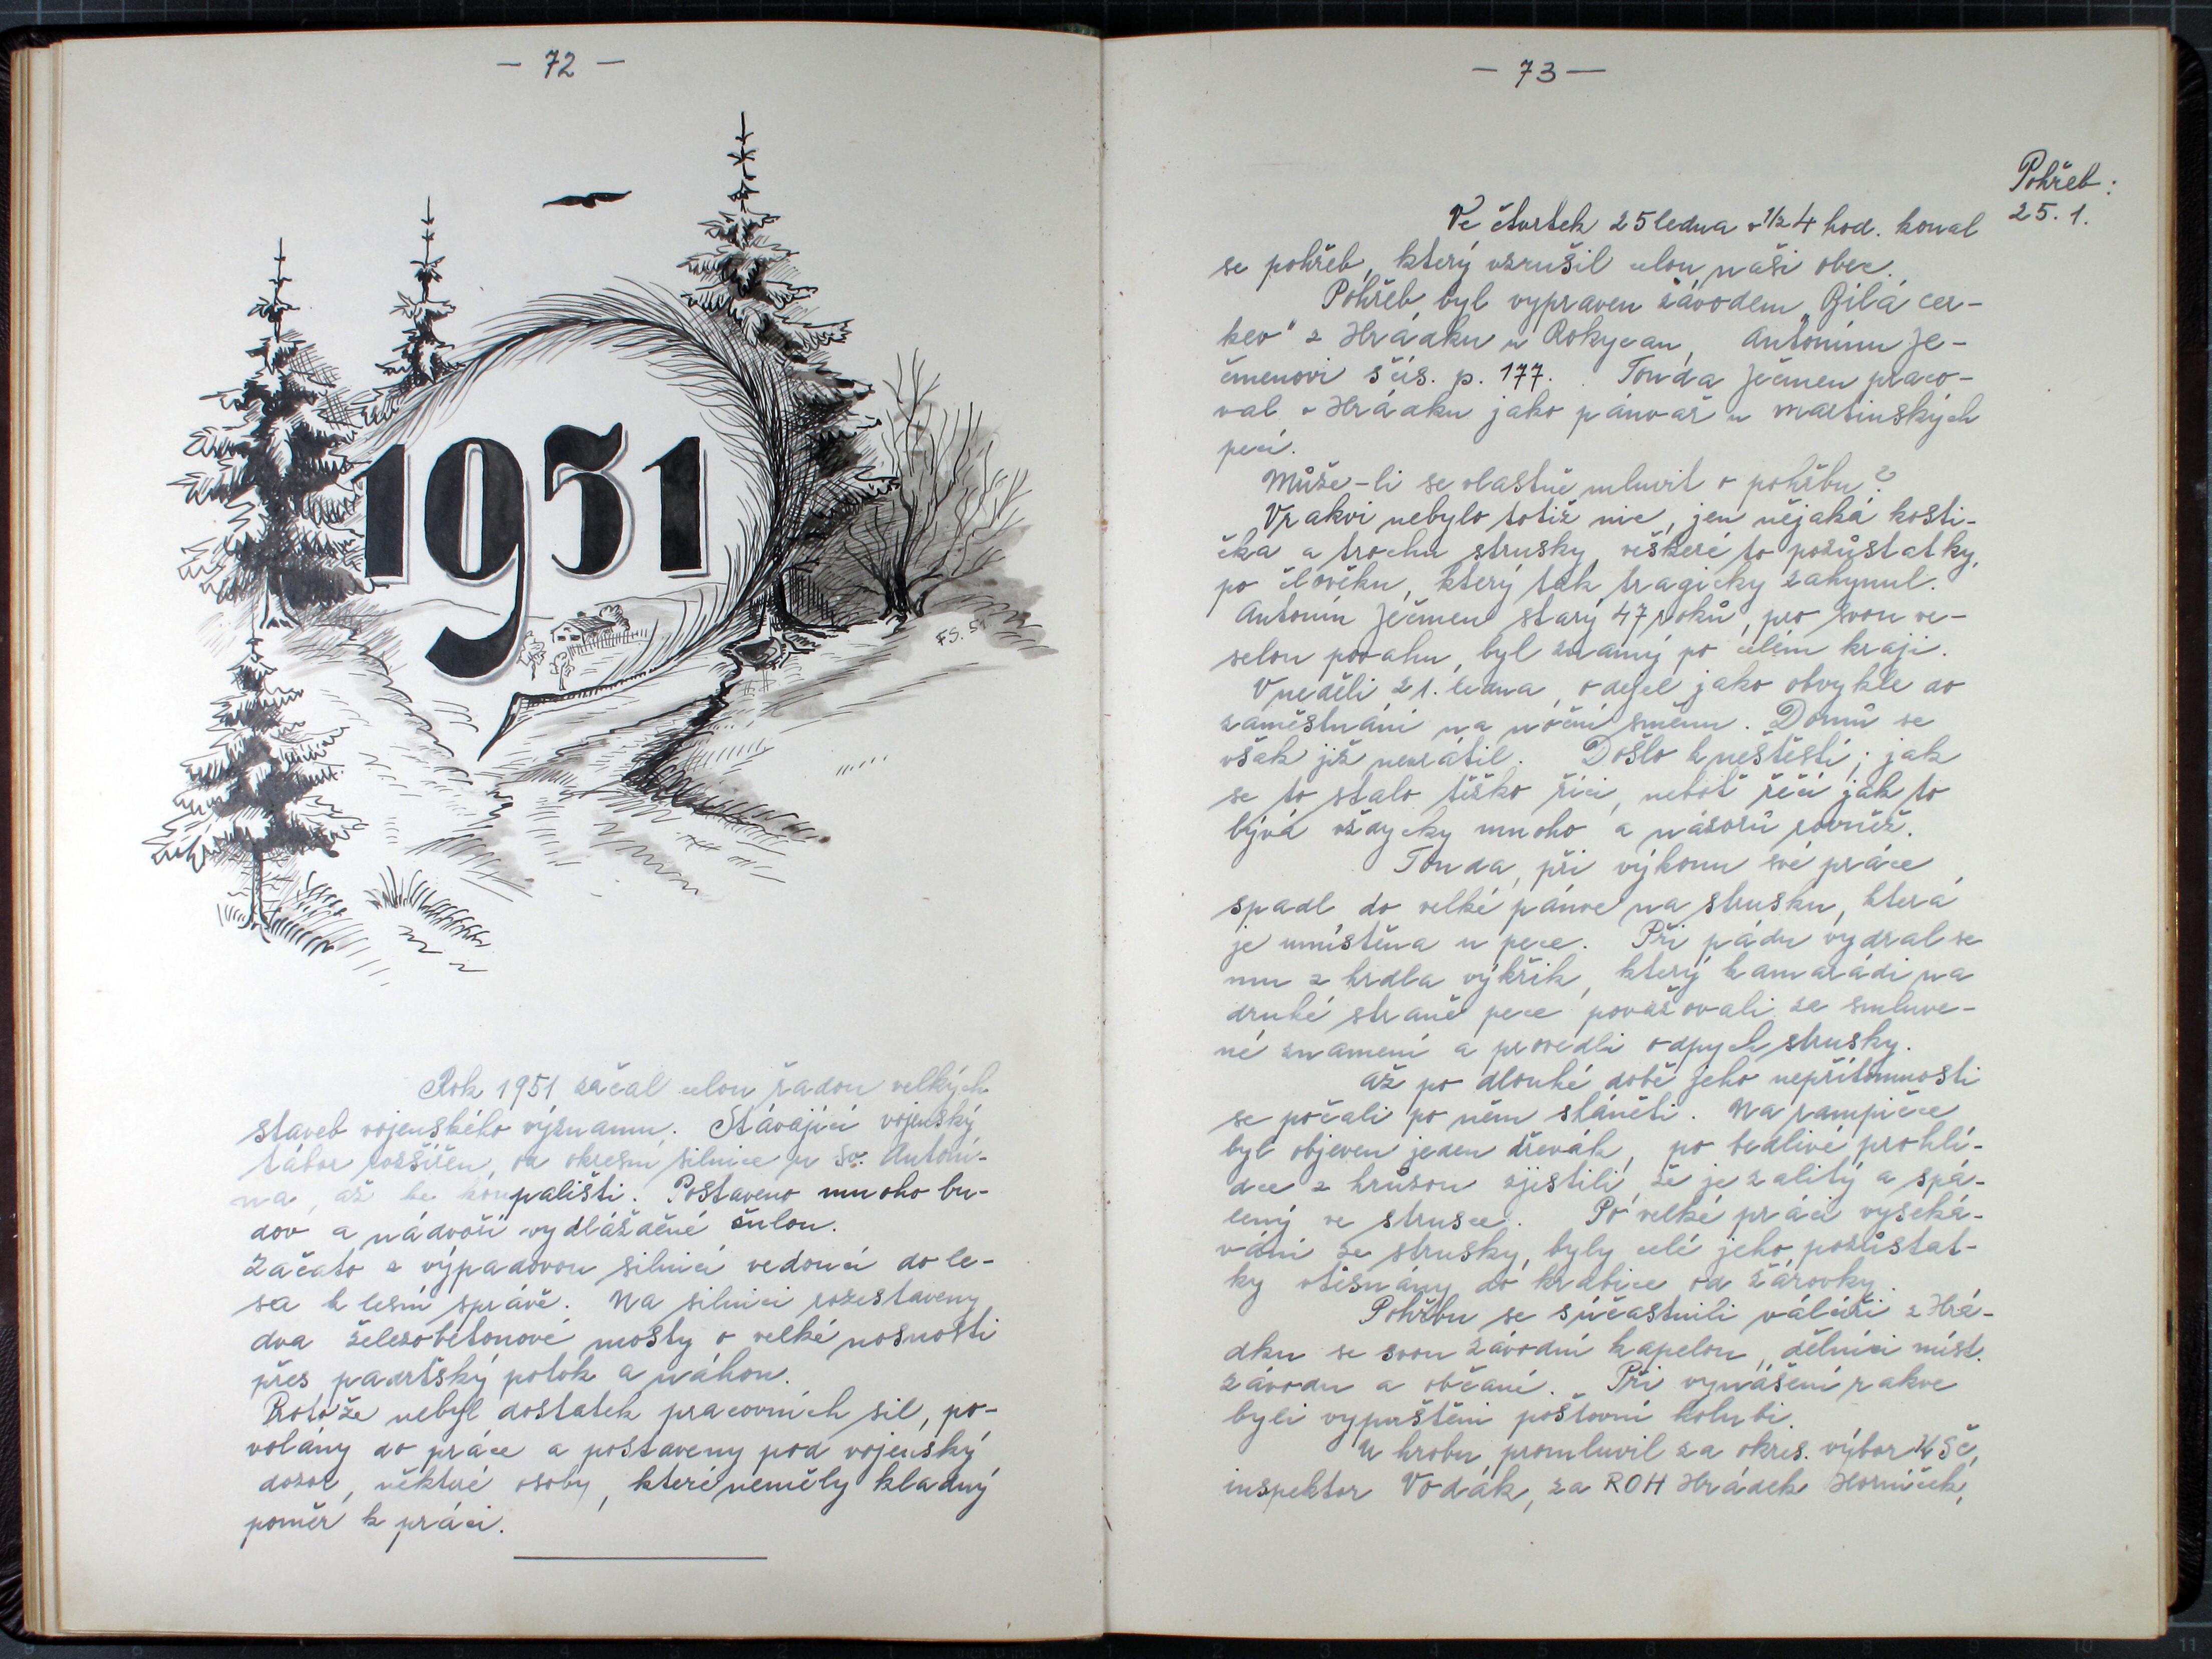 — 72 —
1951
FS. 51
Rok 1951 začal celou řadou velkých
staveb vojenského významu. Stávající vojenský
tábor rozšířen, od okresní silnice u sv. Antoní-
na, až ke koupališti. Postaveno mnoho bu-
dov a nádvoří vydlážděné žulou.
Začato s výpadovou silnicí vedoucí do le-
sa k lesní správě. Na silnici rozestaveny
dva železobetonové mosty o velké nosnosti
přes padrťský potok a náhon.
Protože nebyl dostatek pracovních sil, po-
volány do práce a postaveny pod vojenský
dozor, některé osoby, které neměly kladný
poměr k práci.
— 73 —
Pohřeb:
25. 1.
Ve čtvrtek 25 ledna v 1/2 4 hod. konal
se pohřeb, který vzrušil celou naši obec.
Pohřeb byl vypraven závodem „Bílá cer-
kev" z Hrádku u Rokycan, Antonínu Je-
čmenovi z čís. p. 177. Tonda Ječmen praco-
val v Hrádku jako pánvař u martinských
pecí.
Může-li se vlastně mluvit o pohřbu?
V rakvi nebylo totiž nic, jen nějaká kosti-
čka a trochu strusky, veškeré to pozůstatky,
po člověku, který tak tragicky zahynul.
Antonín Ječmen starý 47 roků, pro svou ve-
selou povahu, byl známý po celém kraji.
V neděli 21. ledna, odešel jako obvykle do
zaměstnání na noční směnu. Domů se
však již nevrátil. Došlo k neštěstí; jak
se to stalo těžko říci, neboť řečí jak to
bývá vždycky mnoho a názorů rovněž.
Tonda, při výkonu své práce,
spadl do velké pánve na strusku, která
je umístěna u pece. Při pádu vydral se
mu z hrdla výkřik, který kamarádi na
druhé straně pece považovali za smluve-
né znamení a provedli odpych strusky.
Až po dlouhé době jeho nepřítomnosti
se počali po něm sháněti. Na rampičce
byl objeven jeden dřevák, po bedlivé prohlí-
dce s hrůzou zjistili, že je zalitý a spá-
lený ve strusce. Po velké práci vyseká-
vání ze strusky, byly celé jeho pozůstat-
ky vtěsnány do krabice od žárovky.
Pohřbu se súčastnili válcíři z Hrá-
dku se svou závodní kapelou, dělníci míst.
závodu a občané. Při vynášení rakve
byli vypuštěni poštovní holubi.
U hrobu, promluvil za okres. výbor KSČ,
inspektor Vodák, za ROH Hrádek Horníček,